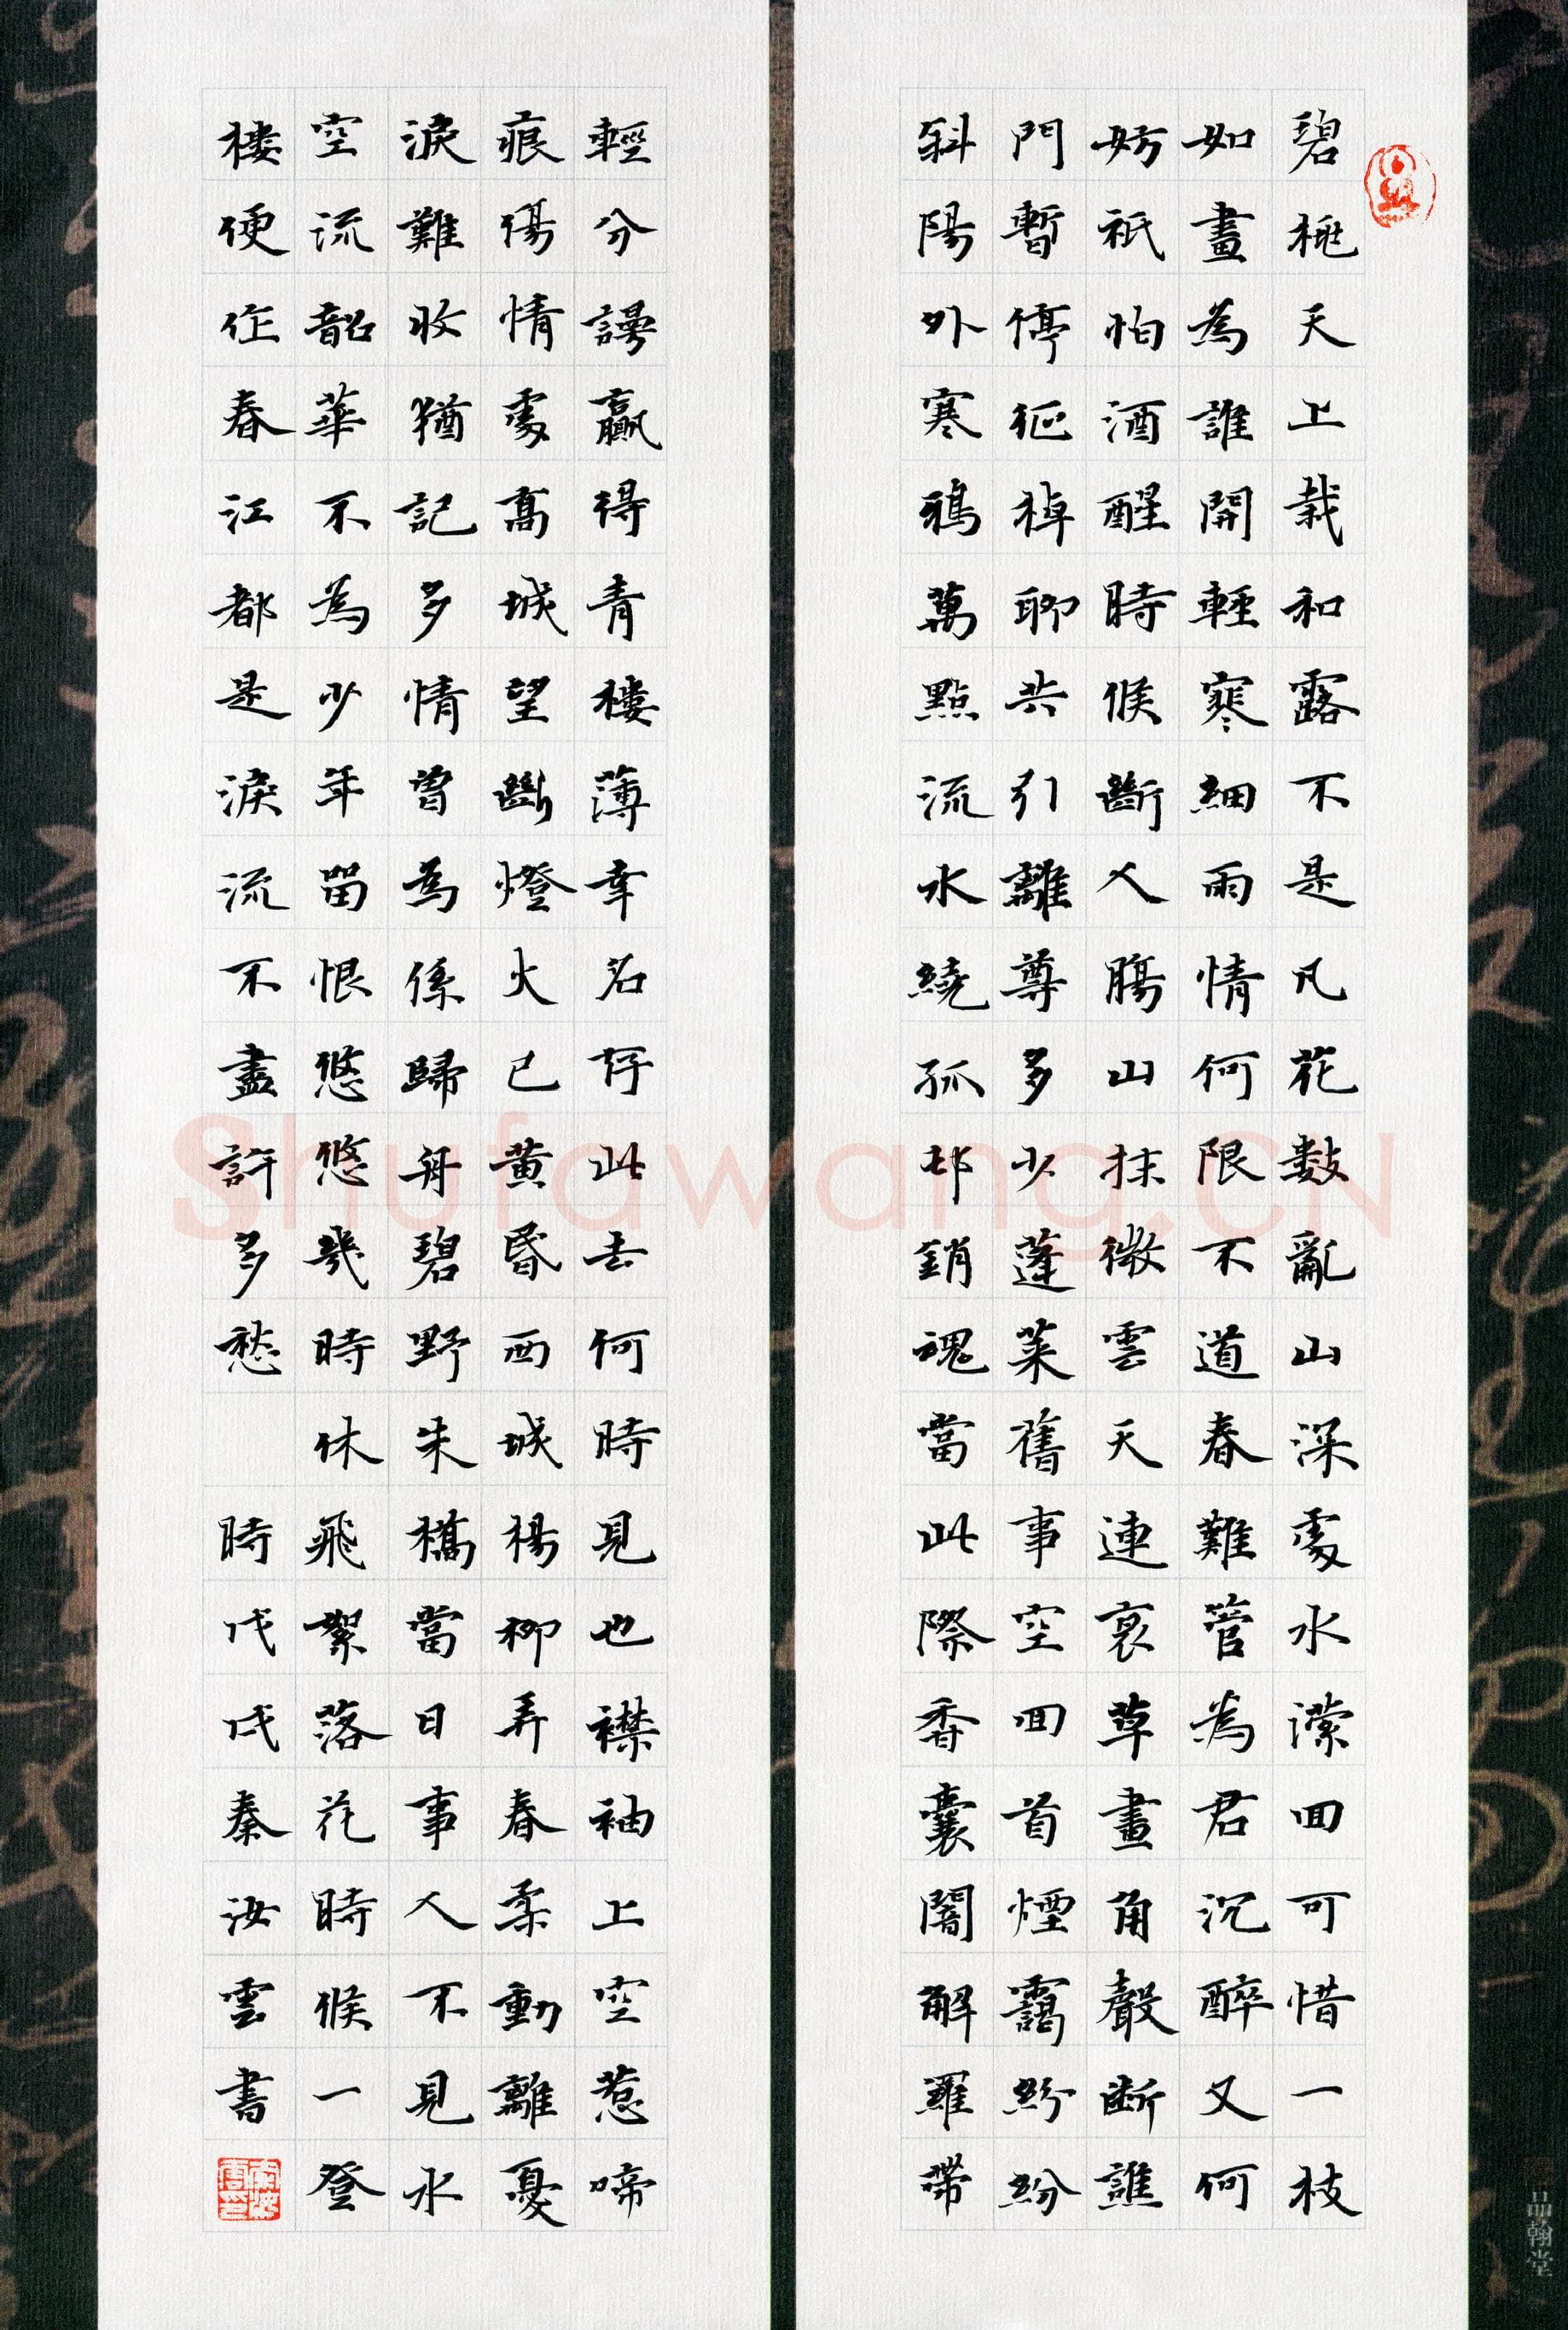 碧桃天上栽和露不是凡花數亂山深處水瀠回可惜一枝
如畫為誰開輕寒細雨情何限不道春難管為君沉醉又何
妨祇怕酒醒時候斷人腸山抹微雲天連衰草畫角聲斷譙
門暫停征棹聊共引離尊多少蓬萊舊事空回首煙靄紛紛
斜陽外寒鴉萬點流水繞孤邨銷魂當此際香囊闇解羅帶
輕分謾贏得青樓薄幸名存此去何時見也襟袖上空惹啼
痕傷情處高城望斷燈火已黃昏西城楊柳弄春柔動離憂
淚難收猶記多情曾為係歸舟碧野朱橋當日事人不見水
空流韶華不為少年留恨悠悠幾時休飛絮落花時候一登
樓便作春江都是淚流不盡許多愁 時戊戌秦汝雲書
Shufawang.CN
品翰堂